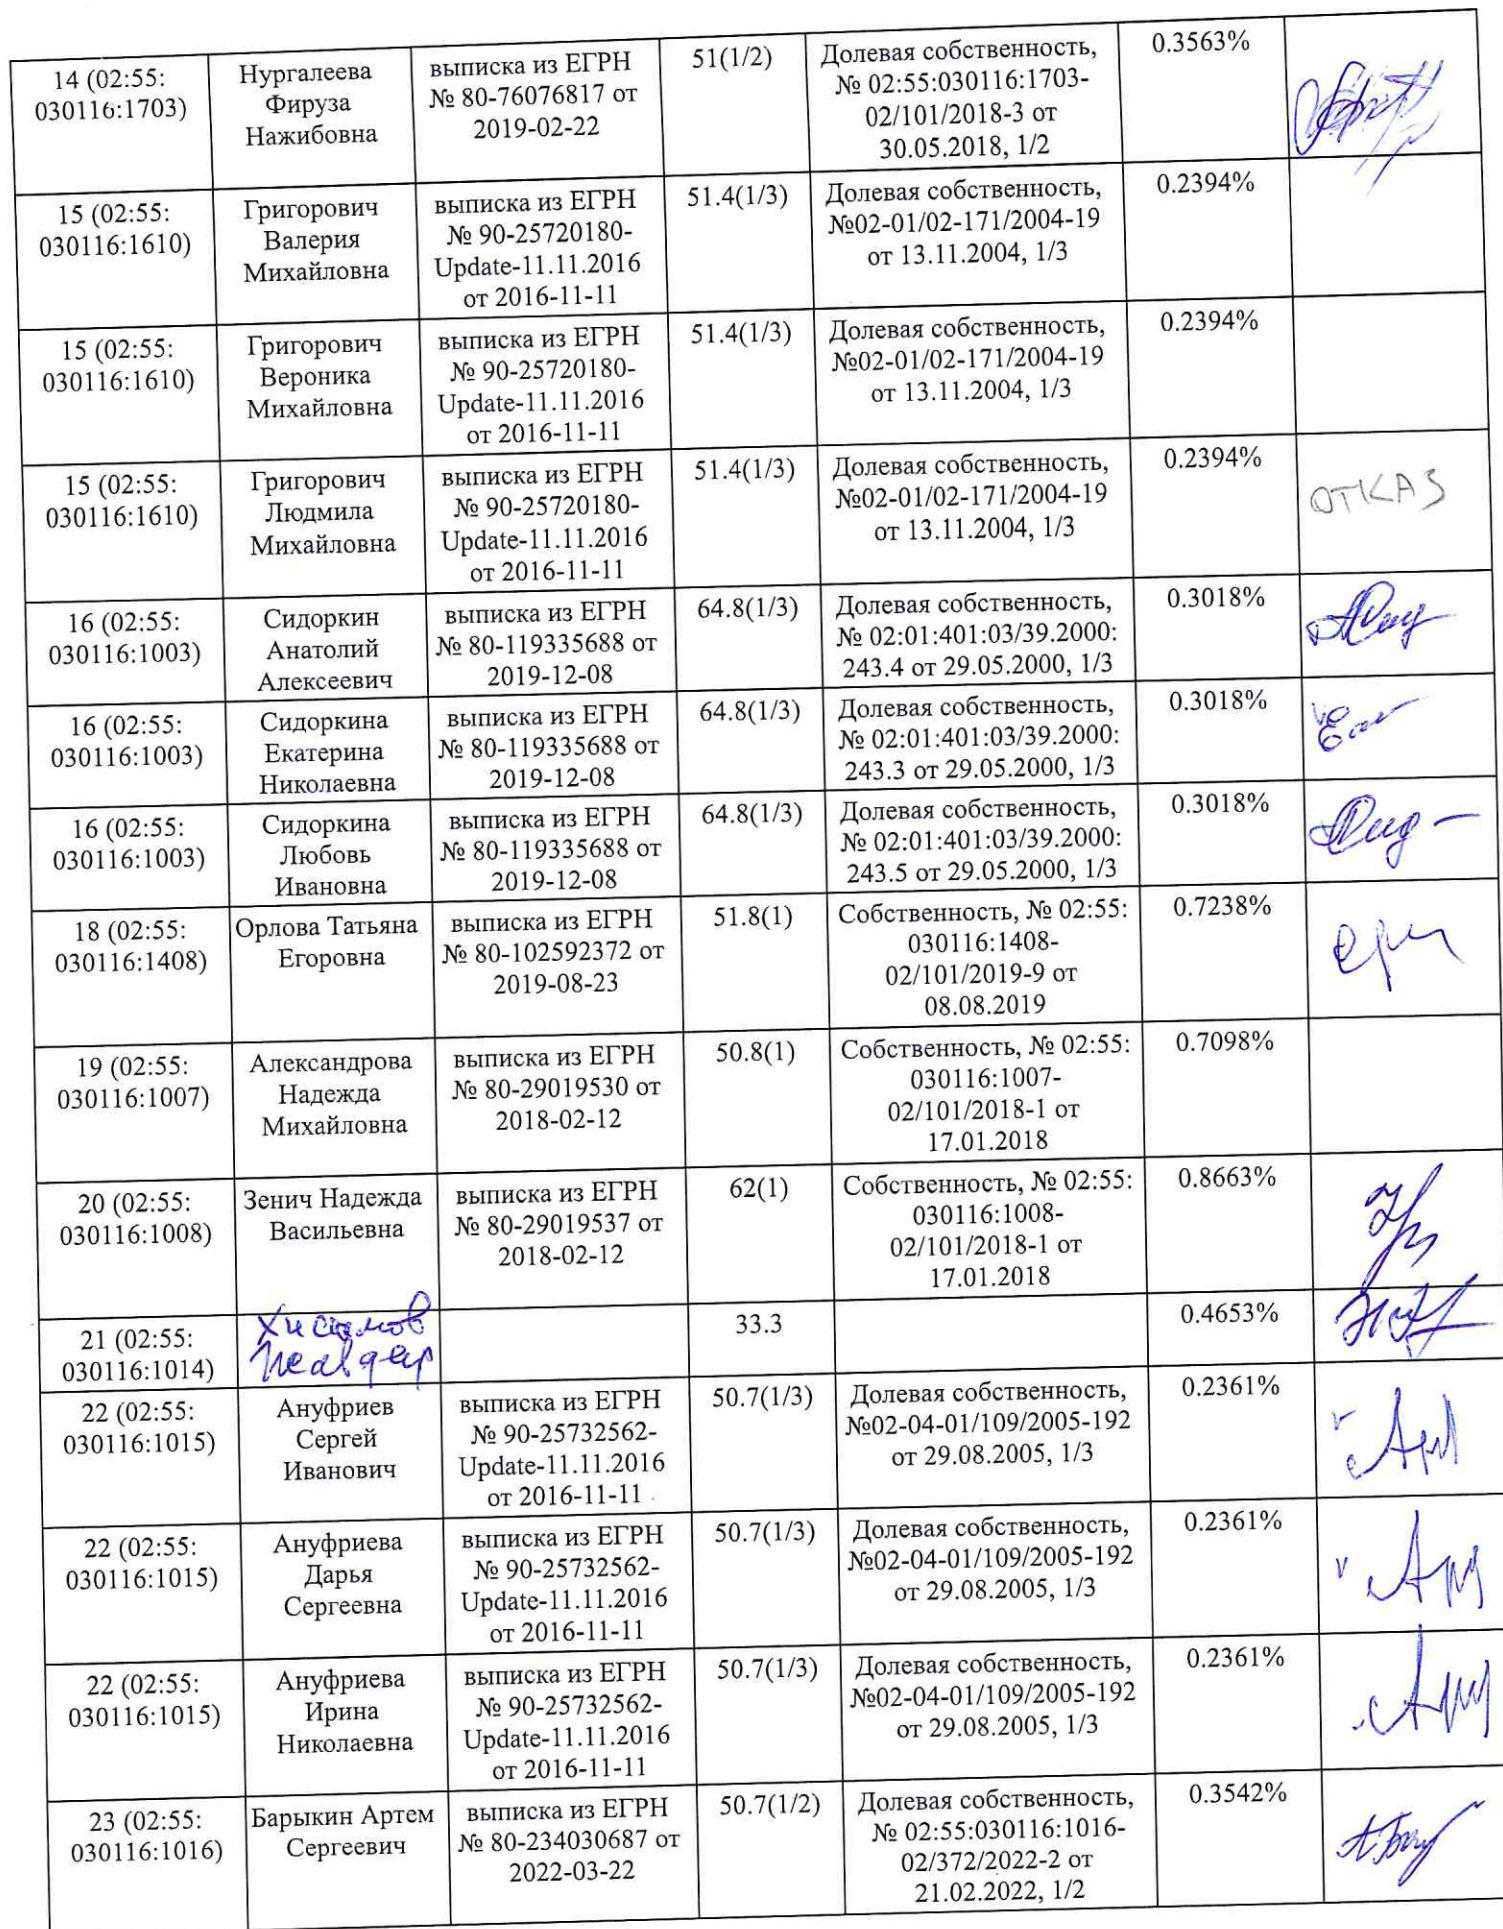 14 (02:55:
030116:1703)
Нургалеева
Фируза
Нажибовна
выписка из ЕГРН
№ 80-76076817 от
2019-02-22
51(1/2)
Долевая собственность,
№ 02:55:030116:1703-
02/101/2018-3 от
30.05.2018, 1/2
0.3563%
15 (02:55:
030116:1610)
Григорович
Валерия
Михайловна
выписка из ЕГРН
№ 90-25720180-
Update-11.11.2016
от 2016-11-11
51.4(1/3)
Долевая собственность,
№02-01/02-171/2004-19
от 13.11.2004, 1/3
0.2394%
15 (02:55:
030116:1610)
Григорович
Вероника
Михайловна
выписка из ЕГРН
№ 90-25720180-
Update-11.11.2016
от 2016-11-11
51.4(1/3)
Долевая собственность,
№02-01/02-171/2004-19
от 13.11.2004, 1/3
0.2394%
15 (02:55:
030116:1610)
Григорович
Людмила
Михайловна
выписка из ЕГРН
№ 90-25720180-
Update-11.11.2016
от 2016-11-11
51.4(1/3)
Долевая собственность,
№02-01/02-171/2004-19
от 13.11.2004, 1/3
0.2394%
ОТКАЗ
16 (02:55:
030116:1003)
Сидоркин
Анатолий
Алексеевич
выписка из ЕГРН
№ 80-119335688 от
2019-12-08
64.8(1/3)
Долевая собственность,
№ 02:01:401:03/39.2000:
243.4 от 29.05.2000, 1/3
0.3018%
16 (02:55:
030116:1003)
Сидоркина
Екатерина
Николаевна
выписка из ЕГРН
№ 80-119335688 от
2019-12-08
64.8(1/3)
Долевая собственность,
№ 02:01:401:03/39.2000:
243.3 от 29.05.2000, 1/3
0.3018%
16 (02:55:
030116:1003)
Сидоркина
Любовь
Ивановна
выписка из ЕГРН
№ 80-119335688 от
2019-12-08
64.8(1/3)
Долевая собственность,
№ 02:01:401:03/39.2000:
243.5 от 29.05.2000, 1/3
0.3018%
18 (02:55:
030116:1408)
Орлова Татьяна
Егоровна
выписка из ЕГРН
№ 80-102592372 от
2019-08-23
51.8(1)
Собственность, № 02:55:
030116:1408-
02/101/2019-9 от
08.08.2019
0.7238%
19 (02:55:
030116:1007)
Александрова
Надежда
Михайловна
выписка из ЕГРН
№ 80-29019530 от
2018-02-12
50.8(1)
Собственность, № 02:55:
030116:1007-
02/101/2018-1 от
17.01.2018
0.7098%
20 (02:55:
030116:1008)
Зенич Надежда
Васильевна
выписка из ЕГРН
№ 80-29019537 от
2018-02-12
62(1)
Собственность, № 02:55:
030116:1008-
02/101/2018-1 от
17.01.2018
0.8663%
21 (02:55:
030116:1014)
Хисамов
33.3
0.4653%
22 (02:55:
030116:1015)
Ануфриев
Сергей
Иванович
выписка из ЕГРН
№ 90-25732562-
Update-11.11.2016
от 2016-11-11
50.7(1/3)
Долевая собственность,
№02-04-01/109/2005-192
от 29.08.2005, 1/3
0.2361%
22 (02:55:
030116:1015)
Ануфриева
Дарья
Сергеевна
выписка из ЕГРН
№ 90-25732562-
Update-11.11.2016
от 2016-11-11
50.7(1/3)
Долевая собственность,
№02-04-01/109/2005-192
от 29.08.2005, 1/3
0.2361%
22 (02:55:
030116:1015)
Ануфриева
Ирина
Николаевна
выписка из ЕГРН
№ 90-25732562-
Update-11.11.2016
от 2016-11-11
50.7(1/3)
Долевая собственность,
№02-04-01/109/2005-192
от 29.08.2005, 1/3
0.2361%
23 (02:55:
030116:1016)
Барыкин Артем
Сергеевич
выписка из ЕГРН
№ 80-234030687 от
2022-03-22
50.7(1/2)
Долевая собственность,
№ 02:55:030116:1016-
02/372/2022-2 от
21.02.2022, 1/2
0.3542%